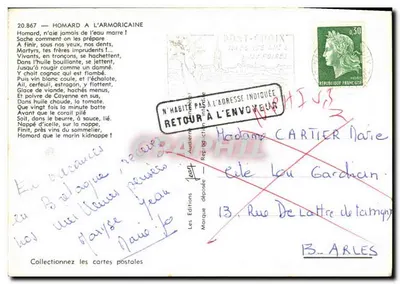 20.867 — HOMARD A L'ARMORICAINE
Homard, n'aie jamais de l'eau marre !
Sache comment on les prépare
A finir, sous nos yeux, nos dents,
Martyrs, tes frères imprudents !...
Vivants, en tronçons, se hachettent,
Dans l'huile bouillante, se jettent,
Jusqu'à rougir comme un damné.
Y choit cognac qui est flambé.
Puis vin blanc coule, et l'échalote,
Ail, cerfeuil, estragon, y flottent,
Glace de viande, hachés menus,
Et poivre de Cayenne en sus,
Dans huile chaude, la tomate.
Que vingt fois la minute batte
Avant que le corail pilé
Soit, dans le beurre, à souple, lié.
Nappé d'icelle, sur la nappe,
Finit, près vins du sommelier,
Homard que le marin kidnappe !
En vacances
en Bretagne, recevez
nos meilleures pensées
Maryse Jean
Marie-Jo
Collectionnez les cartes postales
Les Editions Jony
Marque déposée - Reproduction
PONT-CROIX
0,30
N'HABITE PAS A L'ADRESSE INDIQUÉE
RETOUR A L'ENVOYEUR
Madame CARTIER Marie
Cité Lou Gardian
13, Rue De Lattre de Tassigny
13 - ARLES